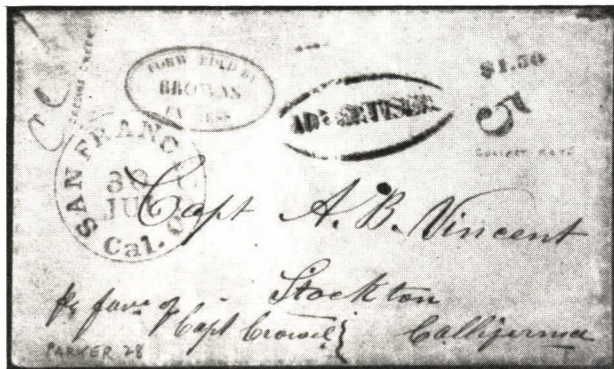 FORWARDED BY
BROWNS
EXPRESS
ADVERTISED
$1.50
5
SAN FRANCISCO
30
JUL
Cal.
Capt A. B. Vincent
Stockton
Callifornia
pr favr of
Capt Crowell
PARKER 28